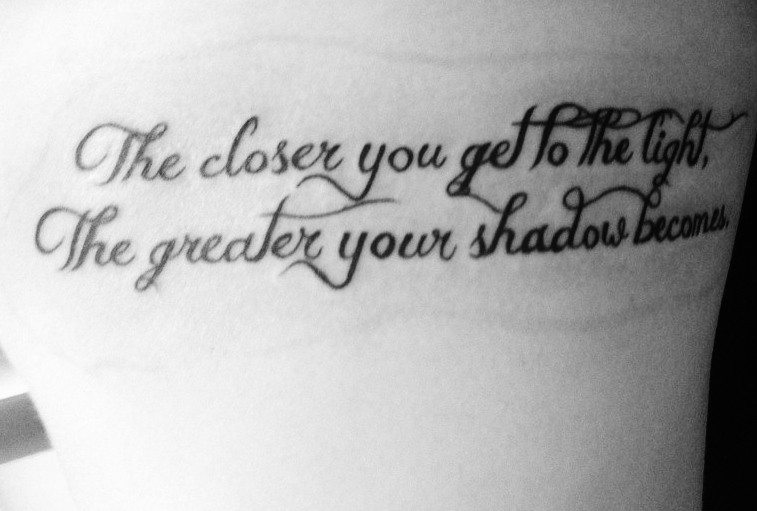 The closer you get to the light,
The greater your shadow becomes.